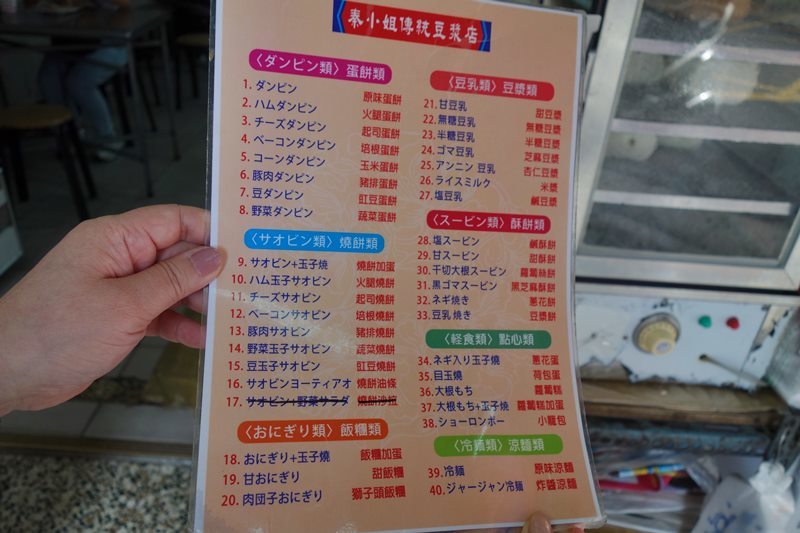 秦小姐傳統豆漿店
〈ダンピン類〉蛋餅類
1. ダンピン 原味蛋餅
2. ハムダンピン 火腿蛋餅
3. チーズダンピン 起司蛋餅
4. ベーコンダンピン 培根蛋餅
5. コーンダンピン 玉米蛋餅
6. 豚肉ダンピン 豬排蛋餅
7. 豆ダンピン 豇豆蛋餅
8. 野菜ダンピン 蔬菜蛋餅
〈サオビン類〉燒餅類
9. サオビン+玉子焼 燒餅加蛋
10. ハム玉子サオビン 火腿燒餅
11. チーズサオビン 起司燒餅
12. ベーコンサオビン 培根燒餅
13. 豚肉サオビン 豬排燒餅
14. 野菜玉子サオビン 蔬菜燒餅
15. 豆玉子サオビン 豇豆燒餅
16. サオビンヨーティアオ 燒餅油條
17. サオビン+野菜サラダ 燒餅沙拉
〈おにぎり類〉飯糰類
18. おにぎり+玉子燒 飯糰加蛋
19. 甘おにぎり 甜飯糰
20. 肉団子おにぎり 獅子頭飯糰
〈豆乳類〉豆漿類
21. 甘豆乳 甜豆漿
22. 無糖豆乳 無糖豆漿
23. 半糖豆乳 半糖豆漿
24. ゴマ豆乳 芝麻豆漿
25. アンニン 豆乳 杏仁豆漿
26. ライスミルク 米漿
27. 塩豆乳 鹹豆漿
〈スービン類〉酥餅類
28. 塩スービン 鹹酥餅
29. 甘スービン 甜酥餅
30. 千切大根スービン 蘿蔔絲餅
31. 黒ゴマスービン 黑芝麻酥餅
32. ネギ焼き 蔥花餅
33. 豆乳焼き 豆漿餅
〈軽食類〉點心類
34. ネギ入り玉子燒 蔥花蛋
35. 目玉燒 荷包蛋
36. 大根もち 蘿蔔糕
37. 大根もち+玉子燒 蘿蔔糕加蛋
38. ショーロンポー 小籠包
〈冷麺類〉涼麵類
39. 冷麺 原味涼麵
40. ジャージャン冷麺 炸醬涼麵